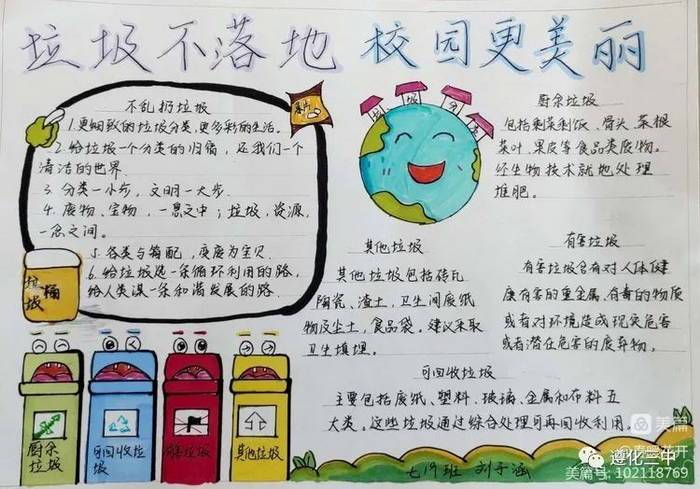 垃圾不落地 校园更美丽
不乱扔垃圾
1.更细致的垃圾分类,更多彩的生活。
2.给垃圾一个分类的归宿,还我们一个
清洁的世界.
3.分类一小步,文明一大步.
4.废物、宝物,一息之中;垃圾,资源,
一念之间。
5.各类与简配,废废为宝贝.
6.给垃圾选一条循环利用的路,
给人类谋一条和谐发展的路.
垃圾桶
薯片
垃 圾 分
厨余垃圾
包括剩菜剩饭、骨头、菜根
菜叶、果皮等食品类废物。
经生物技术就地处理
堆肥。
其他垃圾
其他垃圾包括砖瓦
陶瓷、渣土、卫生间废纸
物皮尘土,食品袋。建议采取
卫生填埋。
有害垃圾
有害垃圾含有对人体健
康有害的重金属、有毒的物质
或者对环境造成现实危害
或者潜在危害的废弃物。
可回收垃圾
主要包括废纸、塑料、玻璃、金属和布料五
大类。这些垃圾通过综合处理可再回收利用。
厨余
垃圾
可回收垃
圾
有害垃圾
其他垃圾
刘子涵
美篇
遵化三中
美篇号:102118769